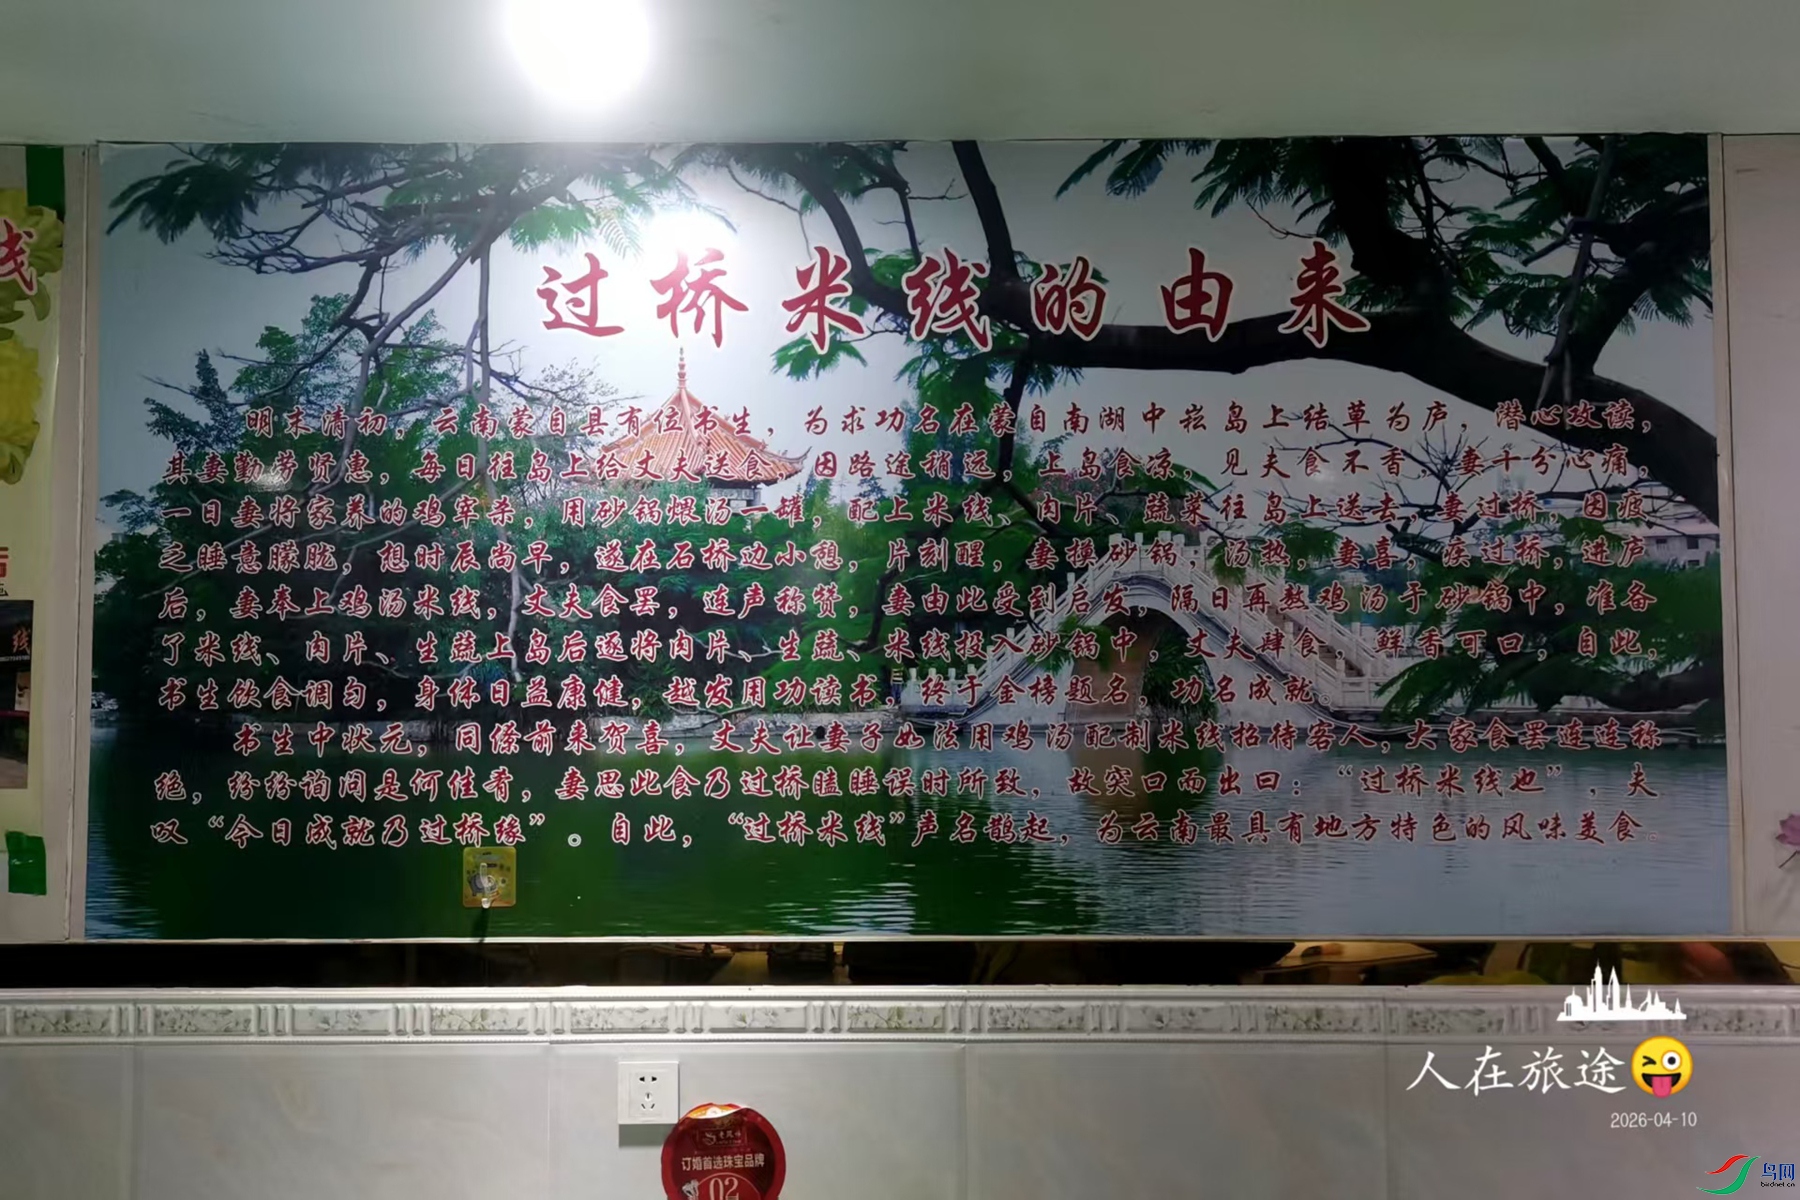 过桥米线的由来
明末清初，云南蒙自县有位书生，为求功名在蒙自南湖中崧岛上结草为庐，潜心攻读，
其妻勤劳贤惠，每日往岛上给丈夫送食，因路途稍远，上岛食凉，见夫食不香，妻十分心痛，
一日妻将家养的鸡宰杀，用砂锅煨汤一罐，配上米线、肉片、蔬菜往岛上送去，妻过桥，因疲
之睡意朦胧，想时辰尚早，遂在石桥边小憩，片刻醒，妻摸砂锅，汤热，妻喜，疾过桥，进庐
后，妻奉上鸡汤米线，丈夫食罢，连声称赞，妻由此受到启发，隔日再熬鸡汤于砂锅中，准备
了米线、肉片、生蔬上岛后逐将肉片、生蔬、米线投入砂锅中，丈夫肆食，鲜香可口，自此，
书生饮食调匀，身体日益康健，越发用功读书，终于金榜题名，功名成就。
书生中状元，同僚前来贺喜，丈夫让妻子如法用鸡汤配制米线招待客人，大家食罢连连称
绝，纷纷询问是何佳肴，妻思此食乃过桥瞌睡误时所致，故突口而出曰：“过桥米线也”，夫
叹“今日成就乃过桥缘”。自此，“过桥米线”声名鹊起，为云南最具有地方特色的风味美食。
线
线
人在旅途😜
2026-04-10
订婚首选珠宝品牌
02
鸟网
birdnet.cn